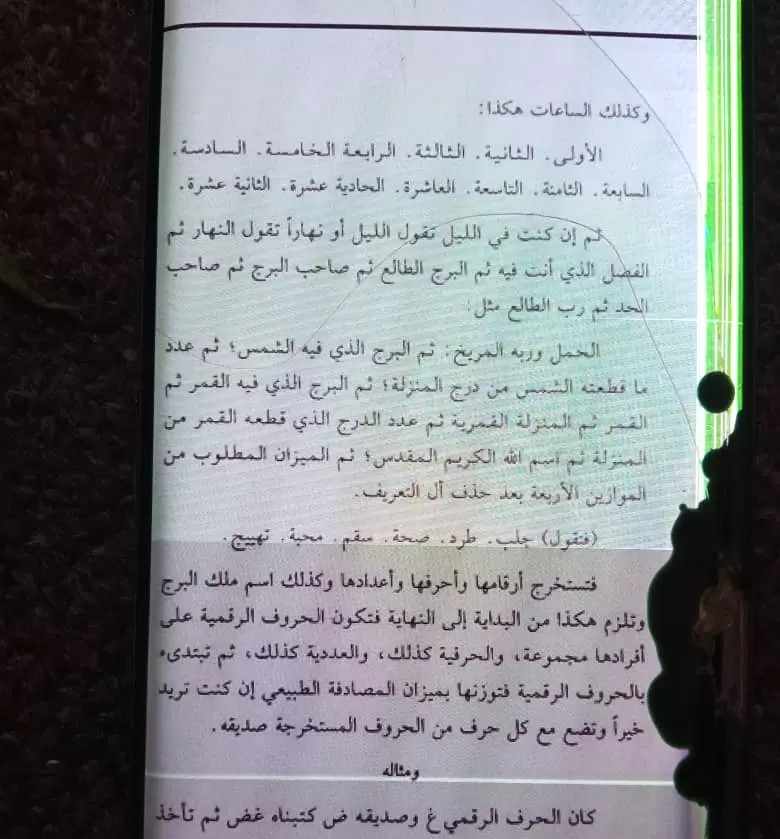 وكذلك الساعات هكذا:
الأولى. الثانية. الثالثة. الرابعة الخامسة. السادسة.
السابعة. الثامنة. التاسعة. العاشرة. الحادية عشرة. الثانية عشرة.
ثم إن كنت في الليل تقول الليل أو نهاراً تقول النهار ثم
الفصل الذي أنت فيه ثم البرج الطالع ثم صاحب البرج ثم صاحب
الحد ثم رب الطالع مثل:
الحمل وربه المريخ: ثم البرج الذي فيه الشمس؛ ثم عدد
ما قطعته الشمس من درج المنزلة؛ ثم البرج الذي فيه القمر ثم
القمر ثم المنزلة القمرية ثم عدد الدرج الذي قطعه القمر من
المنزلة ثم اسم الله الكريم المقدس؛ ثم الميزان المطلوب من
الموازين الأربعة بعد حذف أل التعريف.
(فتقول) جلب. طرد. صحة. سقم. محبة. تهييج.
فتستخرج أرقامها وأحرفها وأعدادها وكذلك اسم ملك البرج
وتلزم هكذا من البداية إلى النهاية فتكون الحروف الرقمية على
أفرادها مجموعة، والحرفية كذلك، والعددية كذلك، ثم تبتدىء
بالحروف الرقمية فتوزنها بميزان المصادفة الطبيعي إن كنت تريد
خيراً وتضع مع كل حرف من الحروف المستخرجة صديقه.
ومثاله
كان الحرف الرقمي غ وصديقه ض كتبناه غض ثم تأخذ